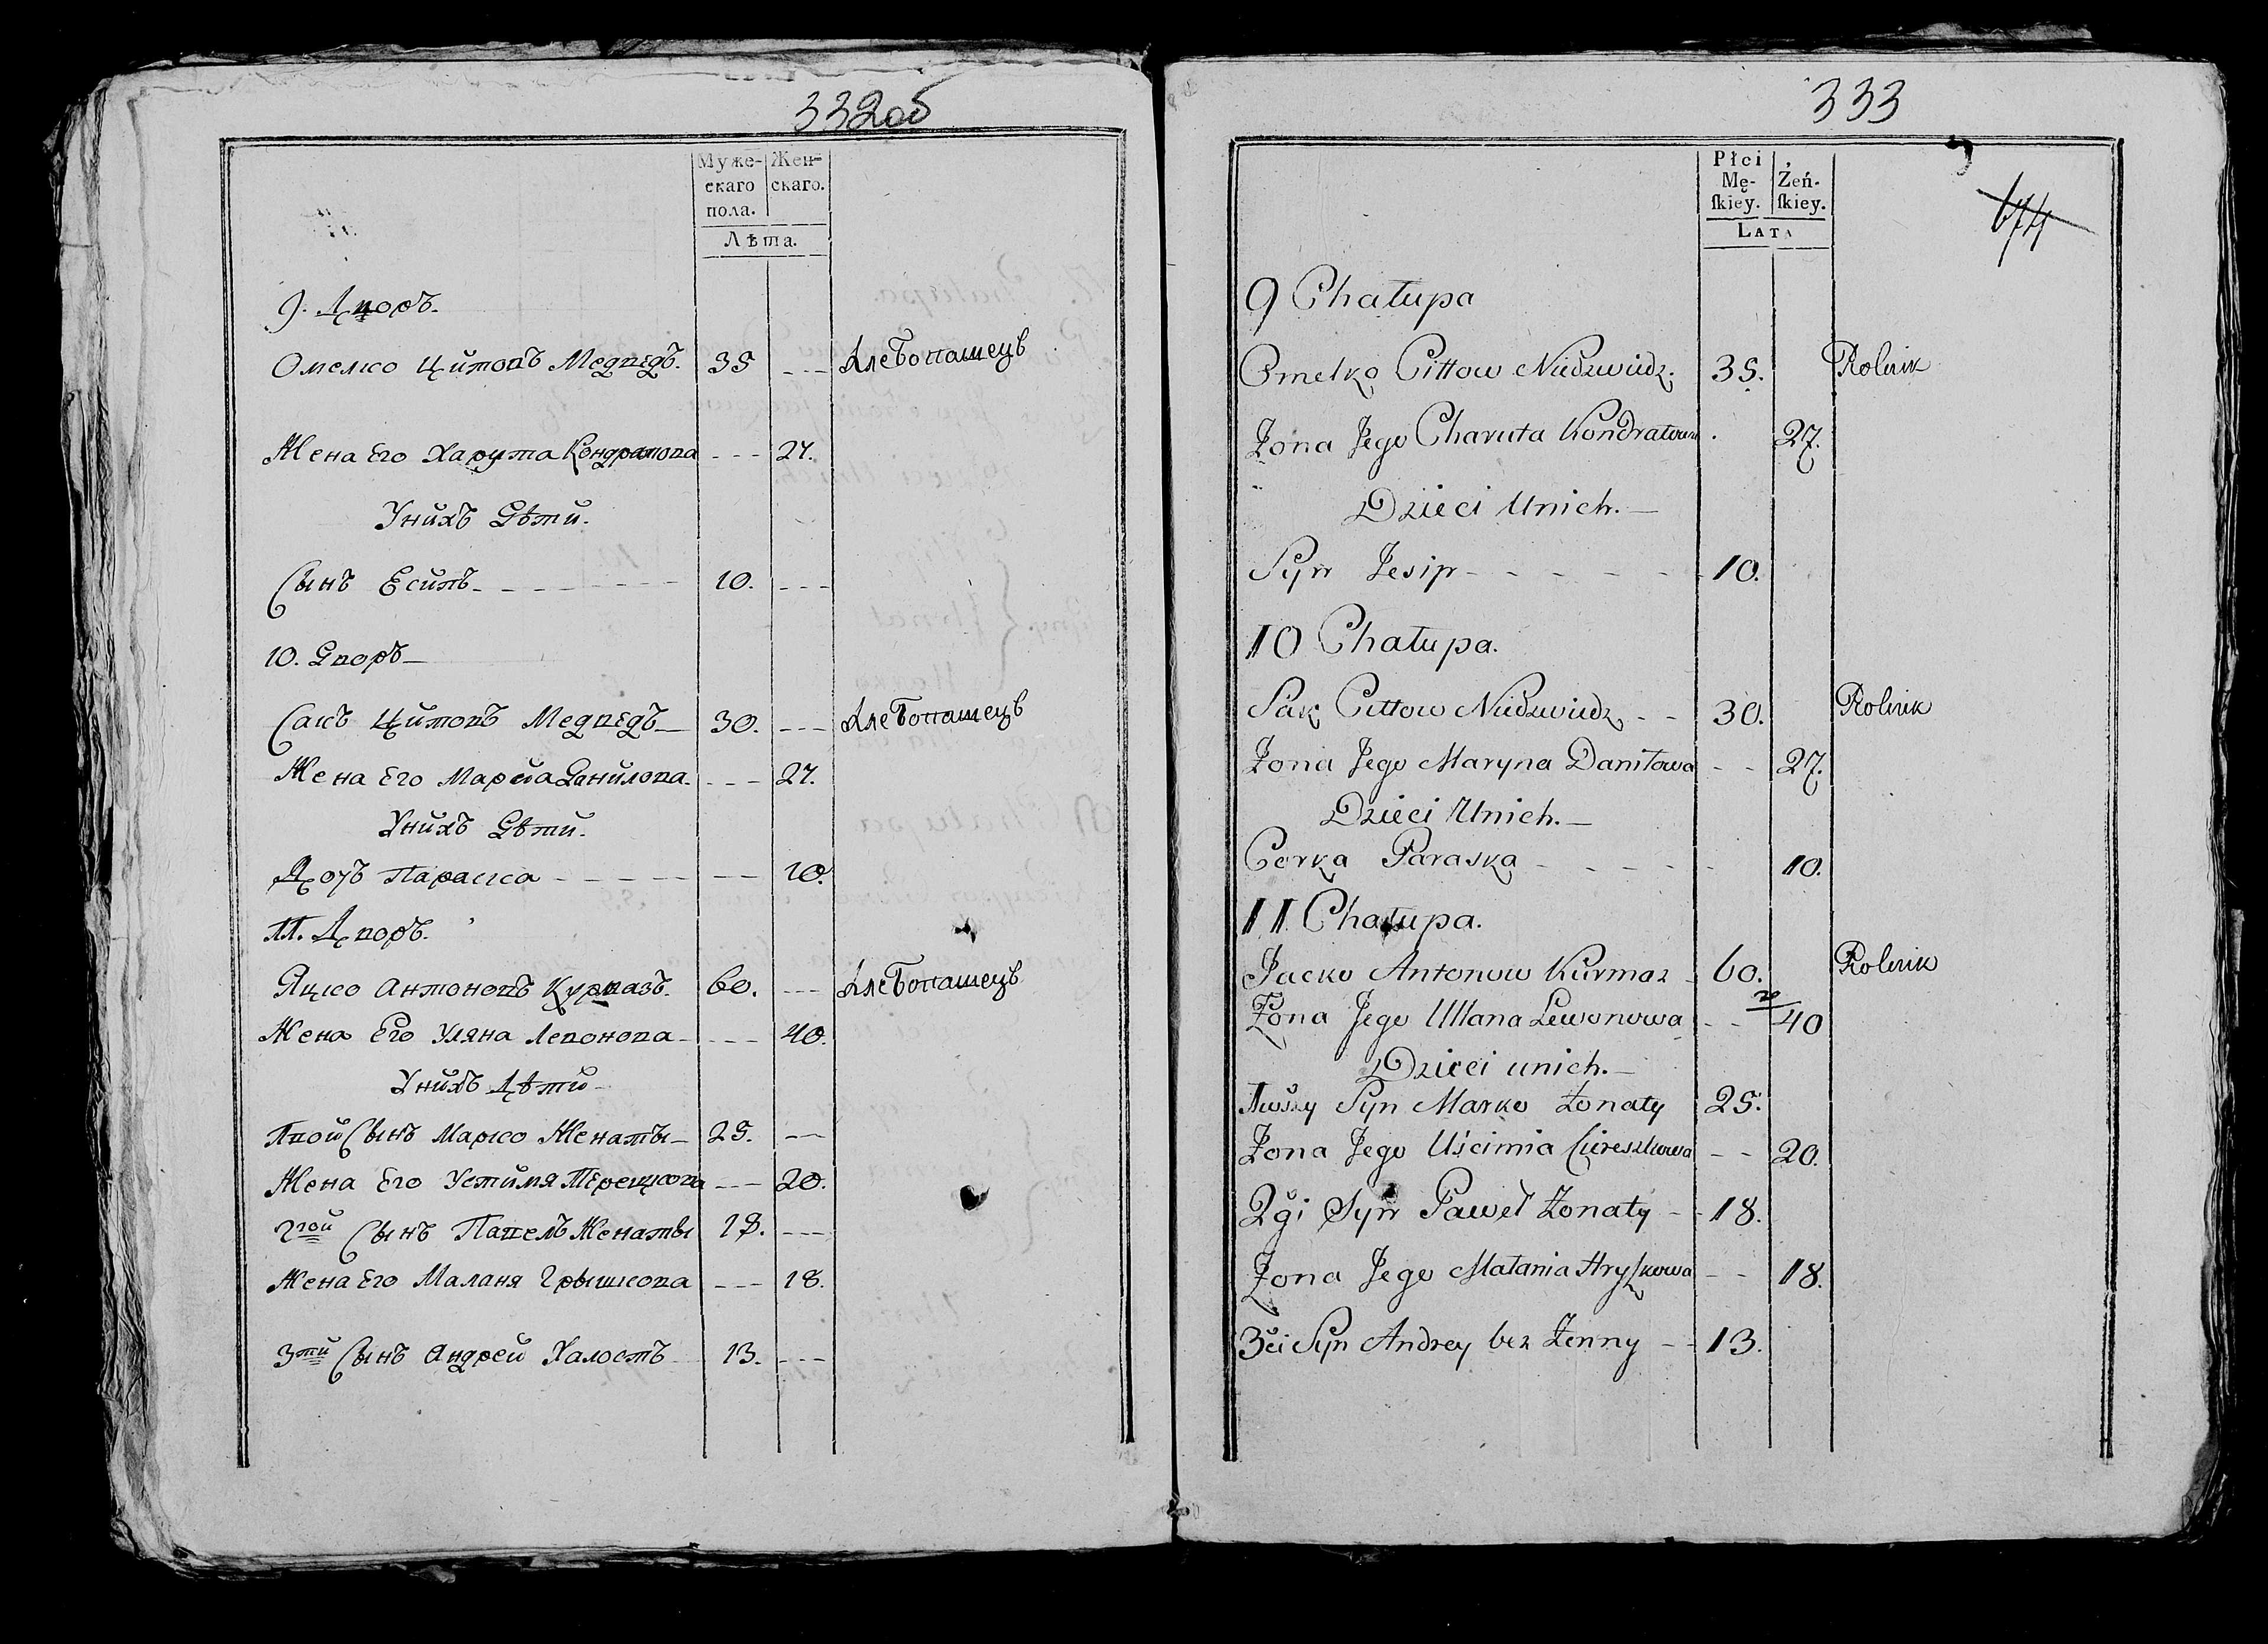 332об
Муже- Жен-
скаго скаго.
пола.
Лѣта.
9. Дворъ.
Омелко Цитовъ Медведъ. 35 --- Хлебопашецъ
Жена Его Харута Кондратова --- 27.
Унихъ Дѣти.
Сынъ Есипъ 10. ---
10. Дворъ
Сакъ Цитовъ Медведъ 30. --- Хлебопашецъ
Жена Его Данилова --- 27.
Унихъ Дѣти.
Дочъ Параска -- 10.
11. Дворъ.
Яцко Антоновъ Курмазъ. 60. --- Хлебопашецъ
Жена Его Уляна Левонова --- 40.
Унихъ Дѣти
1вой Сынъ Марко Женаты 25. ---
Жена Его Устимя --- 20.
2гой Сынъ Павелъ Женаты 18. ---
Жена Его Маланя Грышкова --- 18.
3тй Сынъ Андрей Халостъ 13. ---
333
Płci Żeń-
Mę- ſkiey.
ſkiey.
LATA
674
9 Chałupa
Omelko Cittow Niedzwiedz. 35. Rolnik
Żona Jego Charuta Kondratowa 27.
Dzieci Unich.
Syn Jesip 10.
10 Chałupa.
Sak Cittow Niedzwiedz 30. Rolnik
Żona Jego Maryna Daniłowa -- 27.
Dzieci Unich.
Corka Paraska 10.
11 Chałupa.
Jacko Antonow Kurmaz 60. Rolnik
Żona Jego Ullana Lewonowa -- 40
Dzieci unich.
Syn Marko Żonaty 25.
Żona Jego Uścimia Ciereszkowa -- 20.
2gi Syn Paweł Żonaty 18.
Żona Jego Małania Hryſzkowa -- 18.
3ci Syn Andrey bez Żenny -- 13.